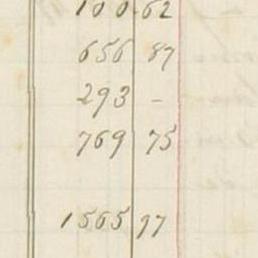 100.62
656 87
293 -
769 75
1565 97